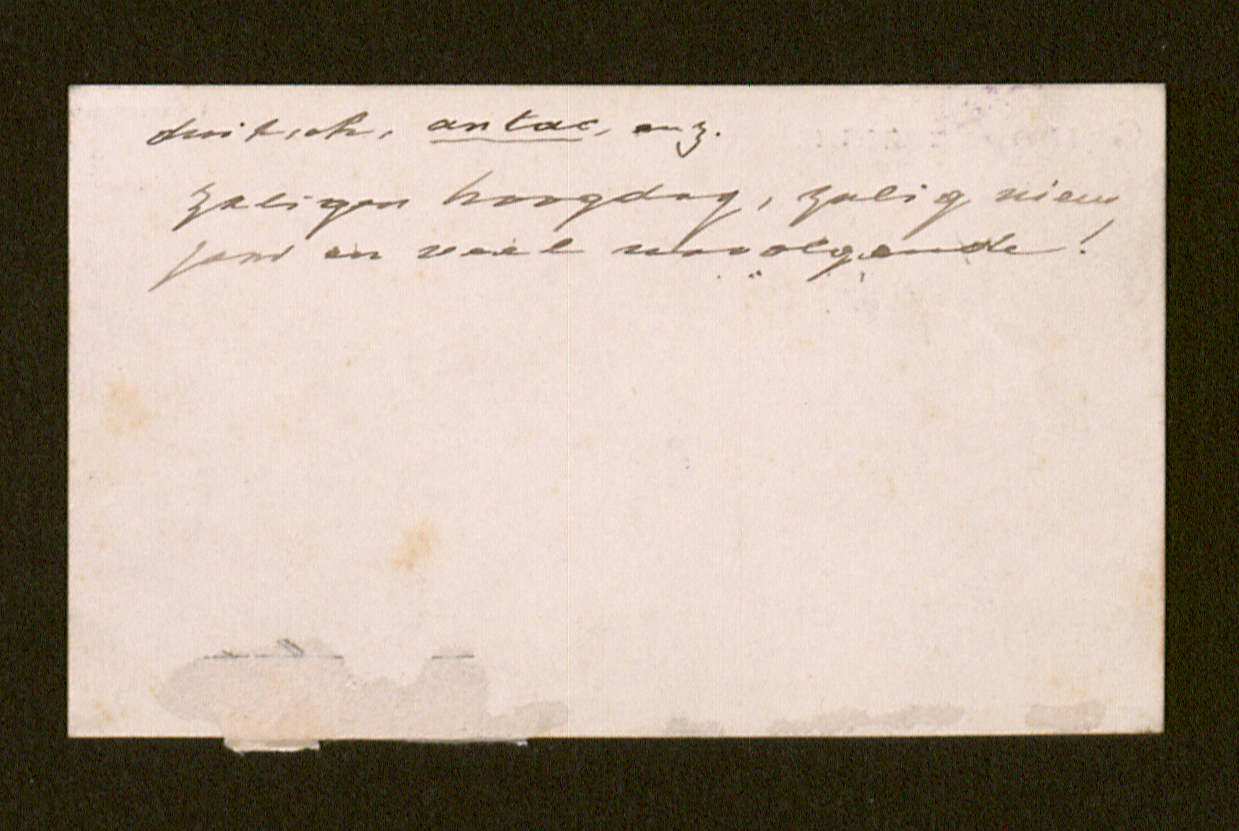 duitsch, antac, enz.
zaligen hoogdag, zalig nieuw
jaar en veel navolgende!